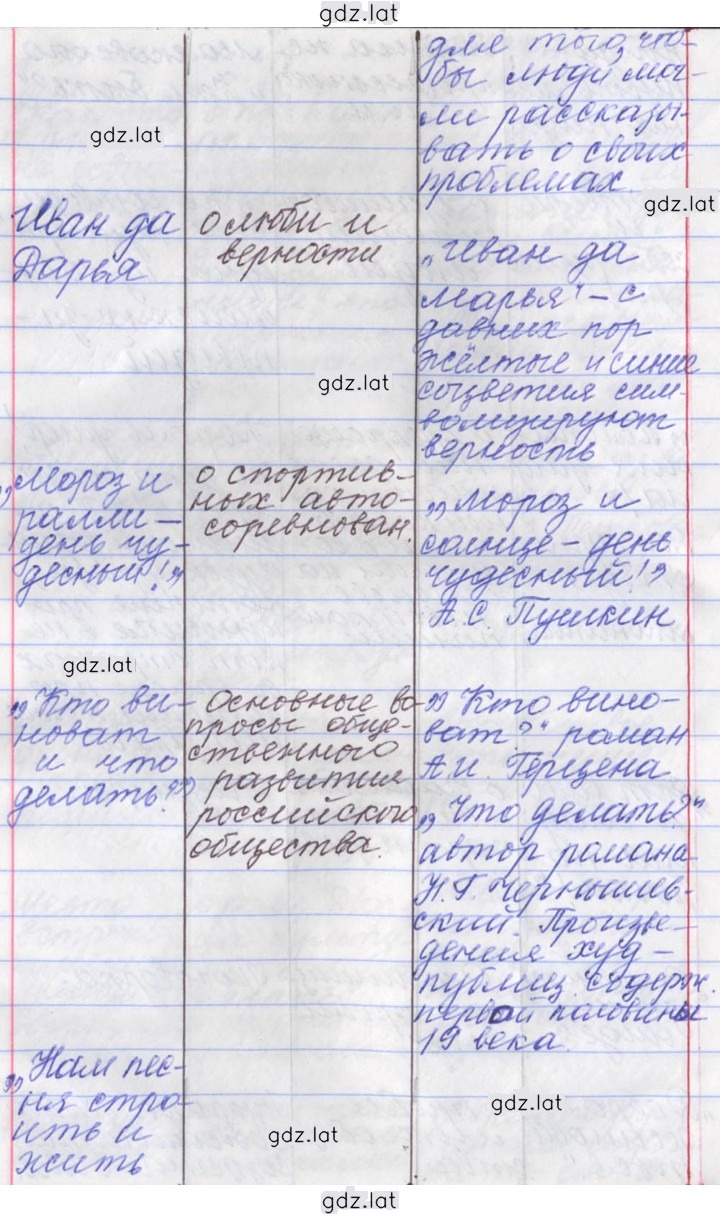 gdz.lat
для того, что-
бы люди мог-
ли рассказы-
вать о своих
проблемах.
gdz.lat
gdz.lat
Иван да
Дарья
о люби и
верности
„Иван да
Марья" – с
давних пор
жёлтые и синие
соцветия сим-
волизируют
верность
gdz.lat
„Мороз и
ралли –
день чу-
десный!"
о спортив-
ных авто-
соревнован.
„Мороз и
солнце – день
чудесный!"
А.С. Пушкин
gdz.lat
„Кто ви-
новат
и что
делать?"
Основные во
просы обще-
ственного
развития
российского
общества.
„Кто вино-
ват?" роман
А.И. Герцена
„Что делать?"
автор романа
Н.Г. Чернышев-
ский. Произве-
дения худ –
публиц. содерж.
первой половины
19 века.
„Нам пес-
ня стро-
ить и
жить
gdz.lat
gdz.lat
gdz.lat